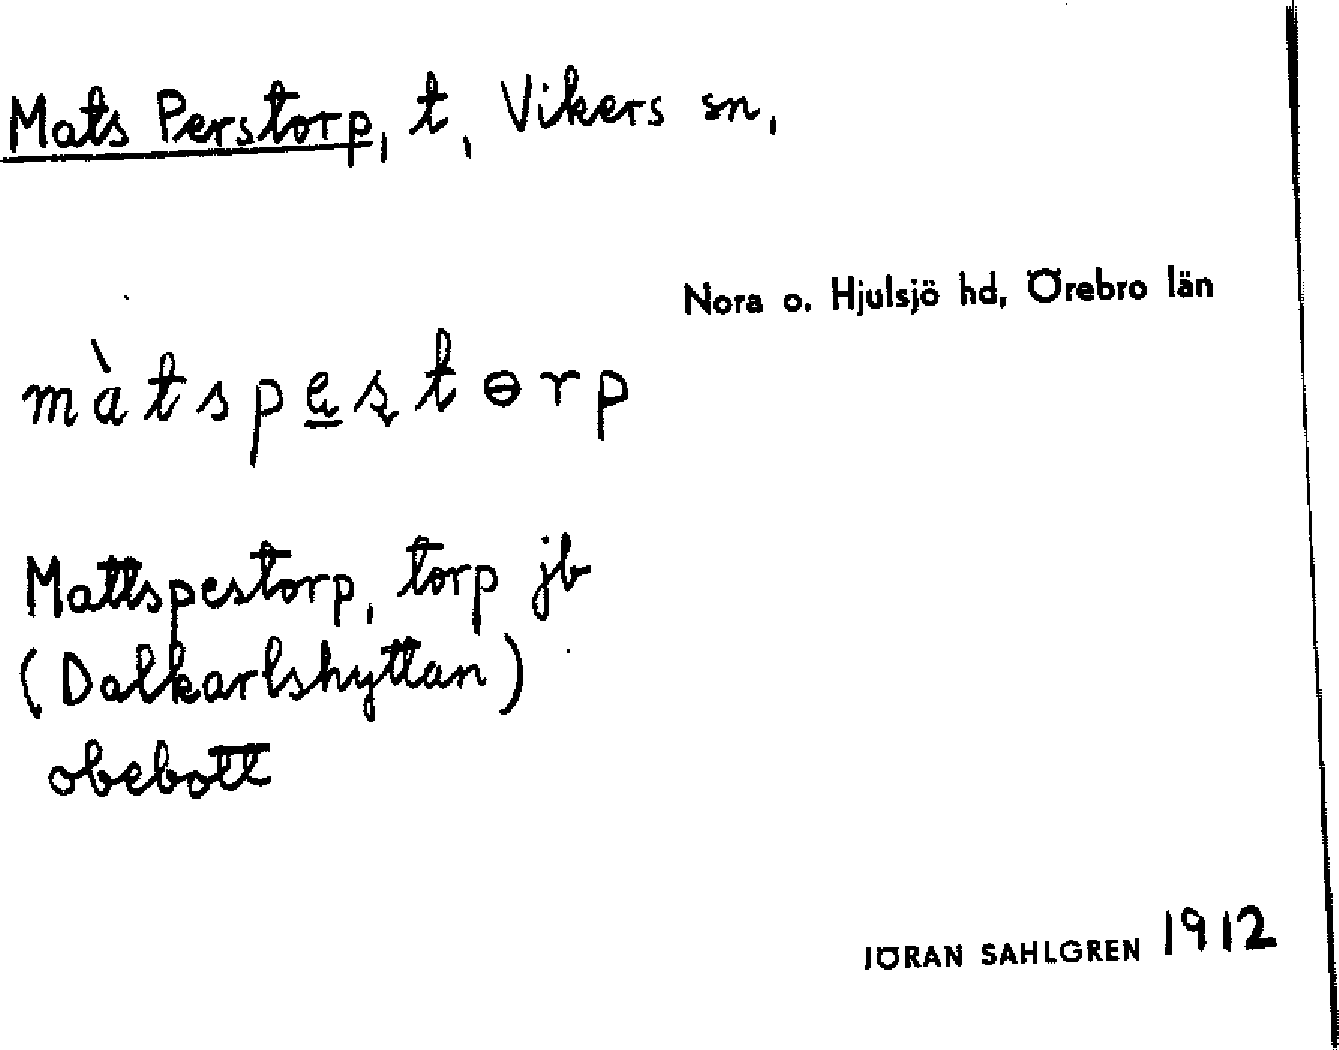 Mats Perstorp, t, Vikers sn,
Nora o. Hjulsjö hd, Örebro län
màtspe̲stɵrp
Mattspestorp, torp jb
(Dalkarlshyttan)
obebott
JÖRAN SAHLGREN 1912